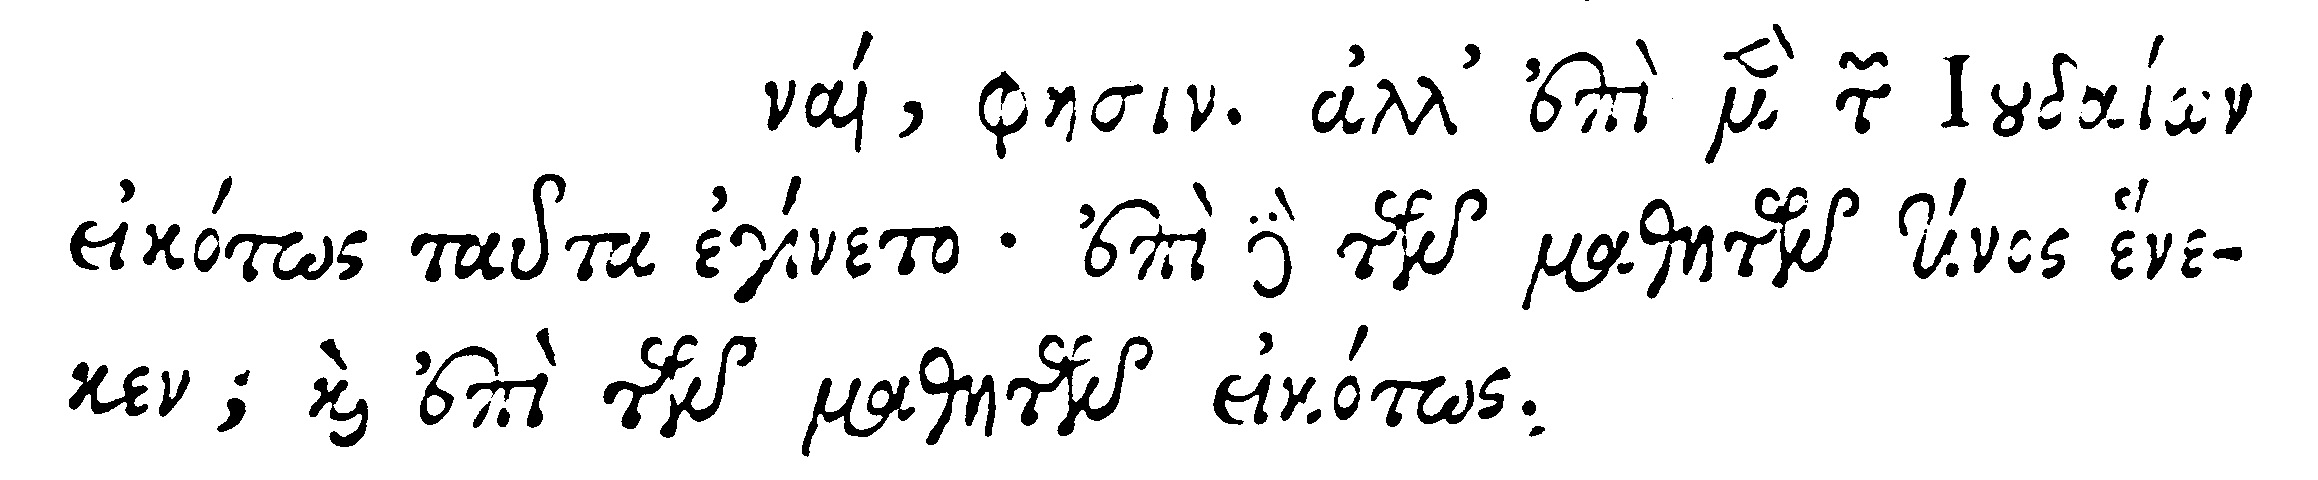 ναί, φησιν. ἀλλ' ἐπὶ μὲν τῶν Ἰουδαίων
εἰκότως ταῦτα ἐγίνετο· ἐπὶ δὲ τῶν μαθητῶν τίνος ἕνε-
κεν; καὶ ἐπὶ τῶν μαθητῶν εἰκότως.